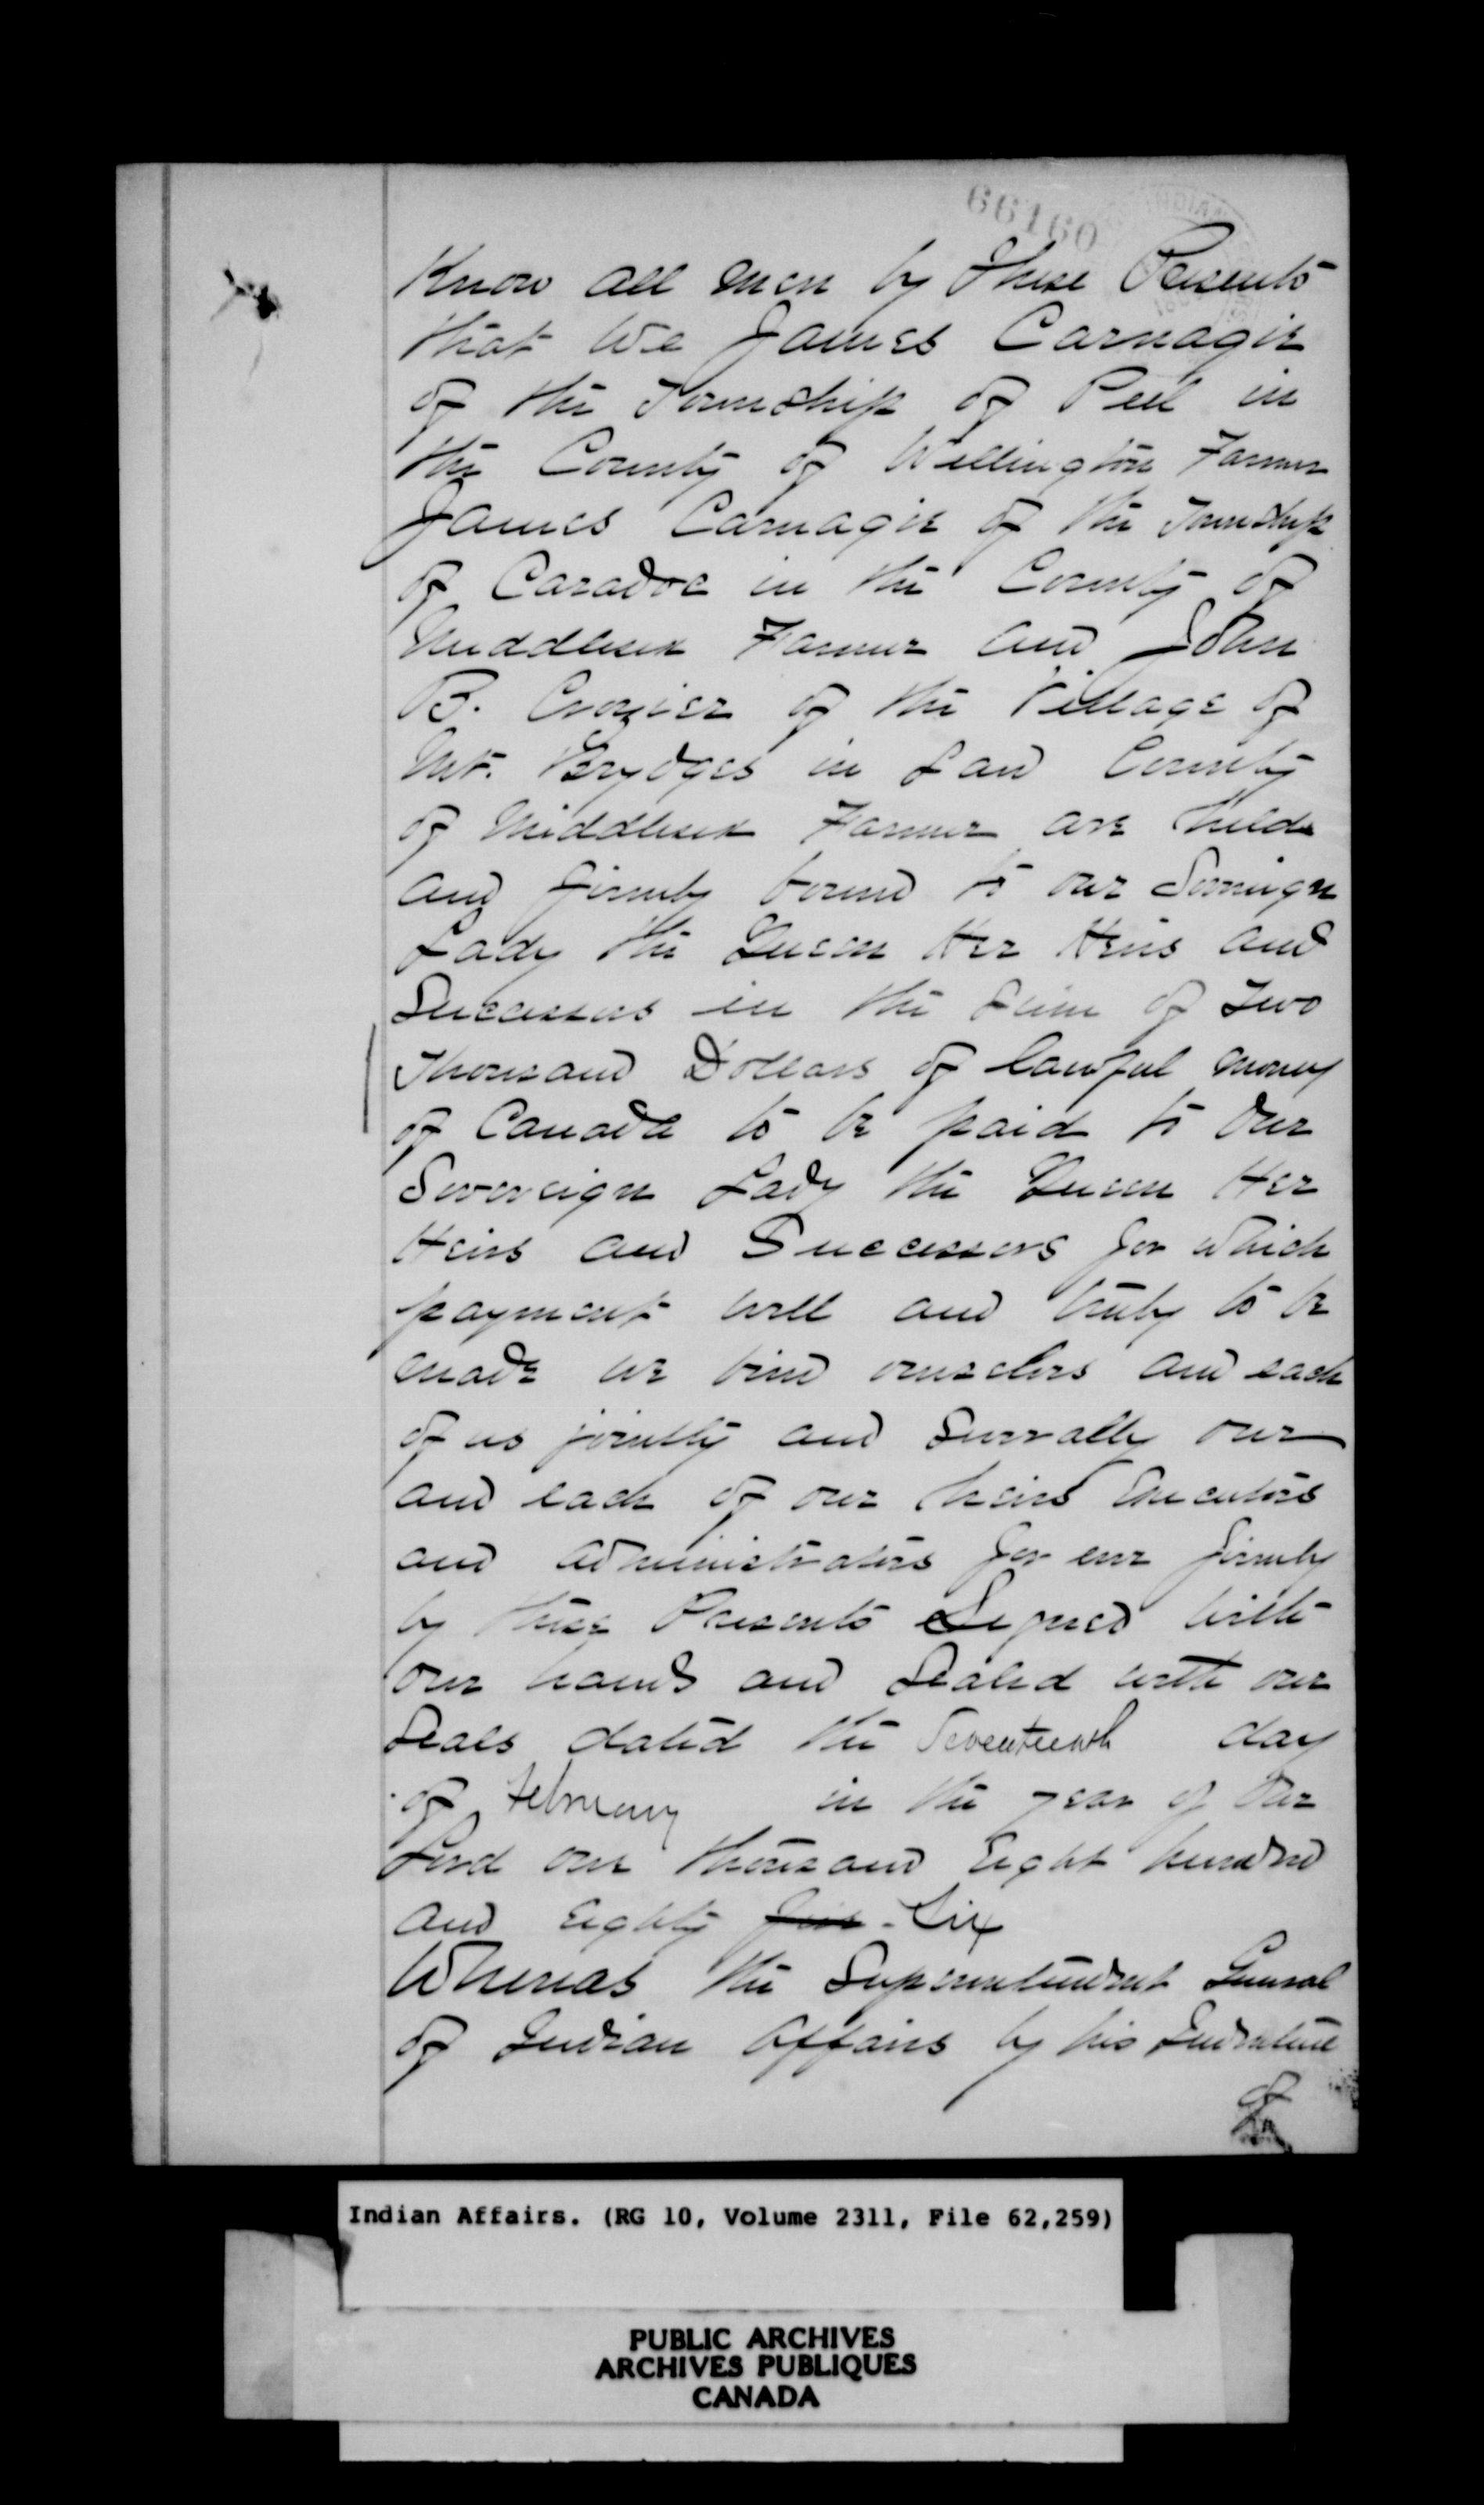 66160
Know all men by these Presents
that We James Carnagie
of the Township of Peel in
the County of Wellington Farmer
James Carnagie of the Township
of Caradoc in the County of
Middlesex Farmer and John
B. Crozier of the Village of
Mt. Brydges in said County
of Middlesex Farmer are held
and firmly bound to our Sovereign
Lady the Queen Her Heirs and
Successors in the sum of Two
Thousand Dollars of lawful money
of Canada to be paid to Our
Sovereign Lady the Queen Her
Heirs and Successors for which
payment well and truly to be
made we bind ourselves and each
of us jointly and severally our
and each of our heirs Executors
and administrators for ever firmly
by these Presents Signed with
our hands and Sealed with our
Seals dated the Seventeenth day
of February in the year of Our
Lord one thousand Eight hundred
and Eighty five - Six
Whereas the Superintendent General
of Indian Affairs by his Indenture
of
Indian Affairs. (RG 10, Volume 2311, File 62,259)
PUBLIC ARCHIVES
ARCHIVES PUBLIQUES
CANADA